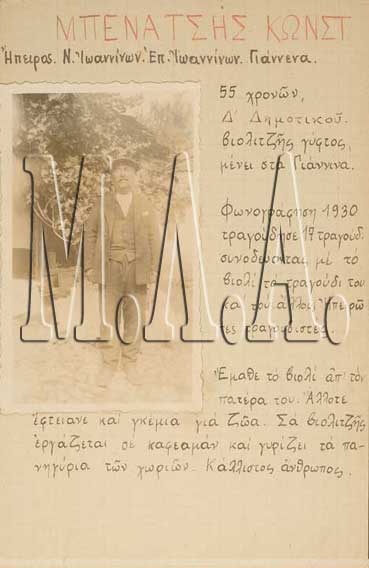 ΜΠΕΝΑΤΣΗΣ ΚΩΝΣΤ
Ἤπειρος. Ν. Ἰωαννίνων. Ἐπ. Ἰωαννίνων. Γιάννενα.
55 χρονῶν,
Δ' Δημοτικοῦ.
βιολιτζῆς γύφτος,
μένει στὰ Γιάννινα.
Φωνογράφηση 1930
τραγούδησε 17 τραγούδ.
συνοδεύοντας μὲ τὸ
βιολὶ τὸ τραγούδι του
καὶ τοὺς ἄλλους Ἠπειρῶ-
τες τραγουδιστές.
Ἔμαθε τὸ βιολὶ ἀπ' τὸν
πατέρα του. Ἄλλοτε
ἔφτειανε καὶ γκέμια γιὰ ζῶα. Σὰ βιολιτζῆς
ἐργάζεται σὲ καφεαμὰν καὶ γυρίζει τὰ πα-
νηγύρια τῶν χωριῶν. Κάλλιστος ἄνθρωπος.
Μ.Λ.Α.